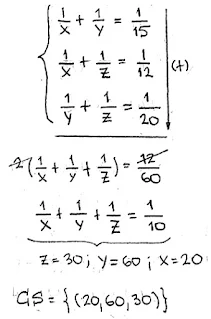 1/x + 1/y = 1/15
1/x + 1/z = 1/12 (+)
1/y + 1/z = 1/20
2(1/x + 1/y + 1/z) = 12/60
1/x + 1/y + 1/z = 1/10
z=30; y=60; x=20
CS = {(20,60,30)}